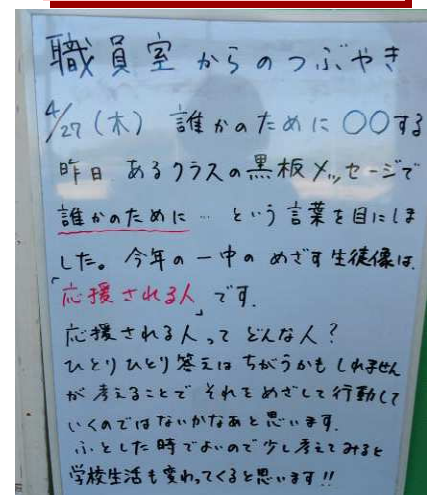 職員室からのつぶやき
4/27(木) 誰かのために ○○する
昨日 あるクラスの黒板メッセージで
誰かのために… という言葉を目にしま
した。今年の一中のめざす生徒像は、
「応援される人」です。
応援される人って どんな人?
ひとりひとり答えは ちがうかもしれません
が 考えることで それをめざして行動して
いくのではないかなあと思います。
ふとした時でよいので少し考えてみると
学校生活も変わってくると思います!!